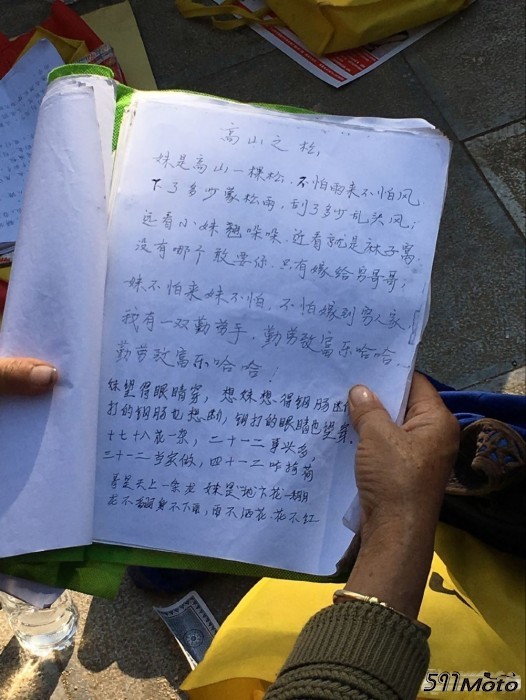 高山之松,
妹是高山一棵松,不怕雨来不怕风,
下了多少蒙松雨,刮了多少乱头风;
远看小妹翘哚哚,近看就是袜子窝
没有哪个敢要你,只有嫁给穷哥哥;
妹不怕来妹不怕,不怕嫁到穷人家,
我有一双勤劳手,勤劳致富乐哈哈…
勤劳致富乐哈哈!
妹望得眼睛穿,想妹想得钢肠断
打的钢肠也想断,钢打的眼睛也望穿,
十七十八花一朵,二十一二事头多,
三十一二当家做,四十一二
哥是天上一条龙 妹是地下花一
龙不翻身不下雨,雨不洒花,花不红
511Moto